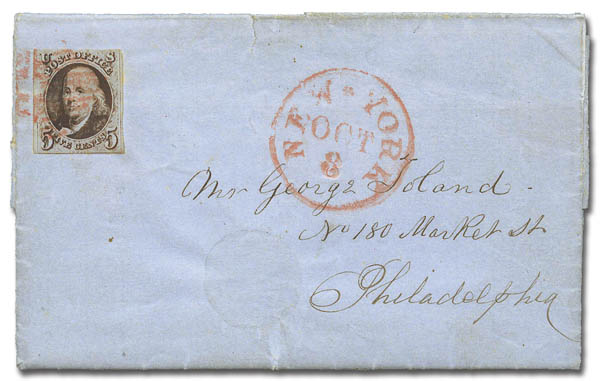 POST OFFICE
5 FIVE CENTS 5
NEW YORK
OCT
8
Mr George Toland
No 180 Market St
Philadelphia